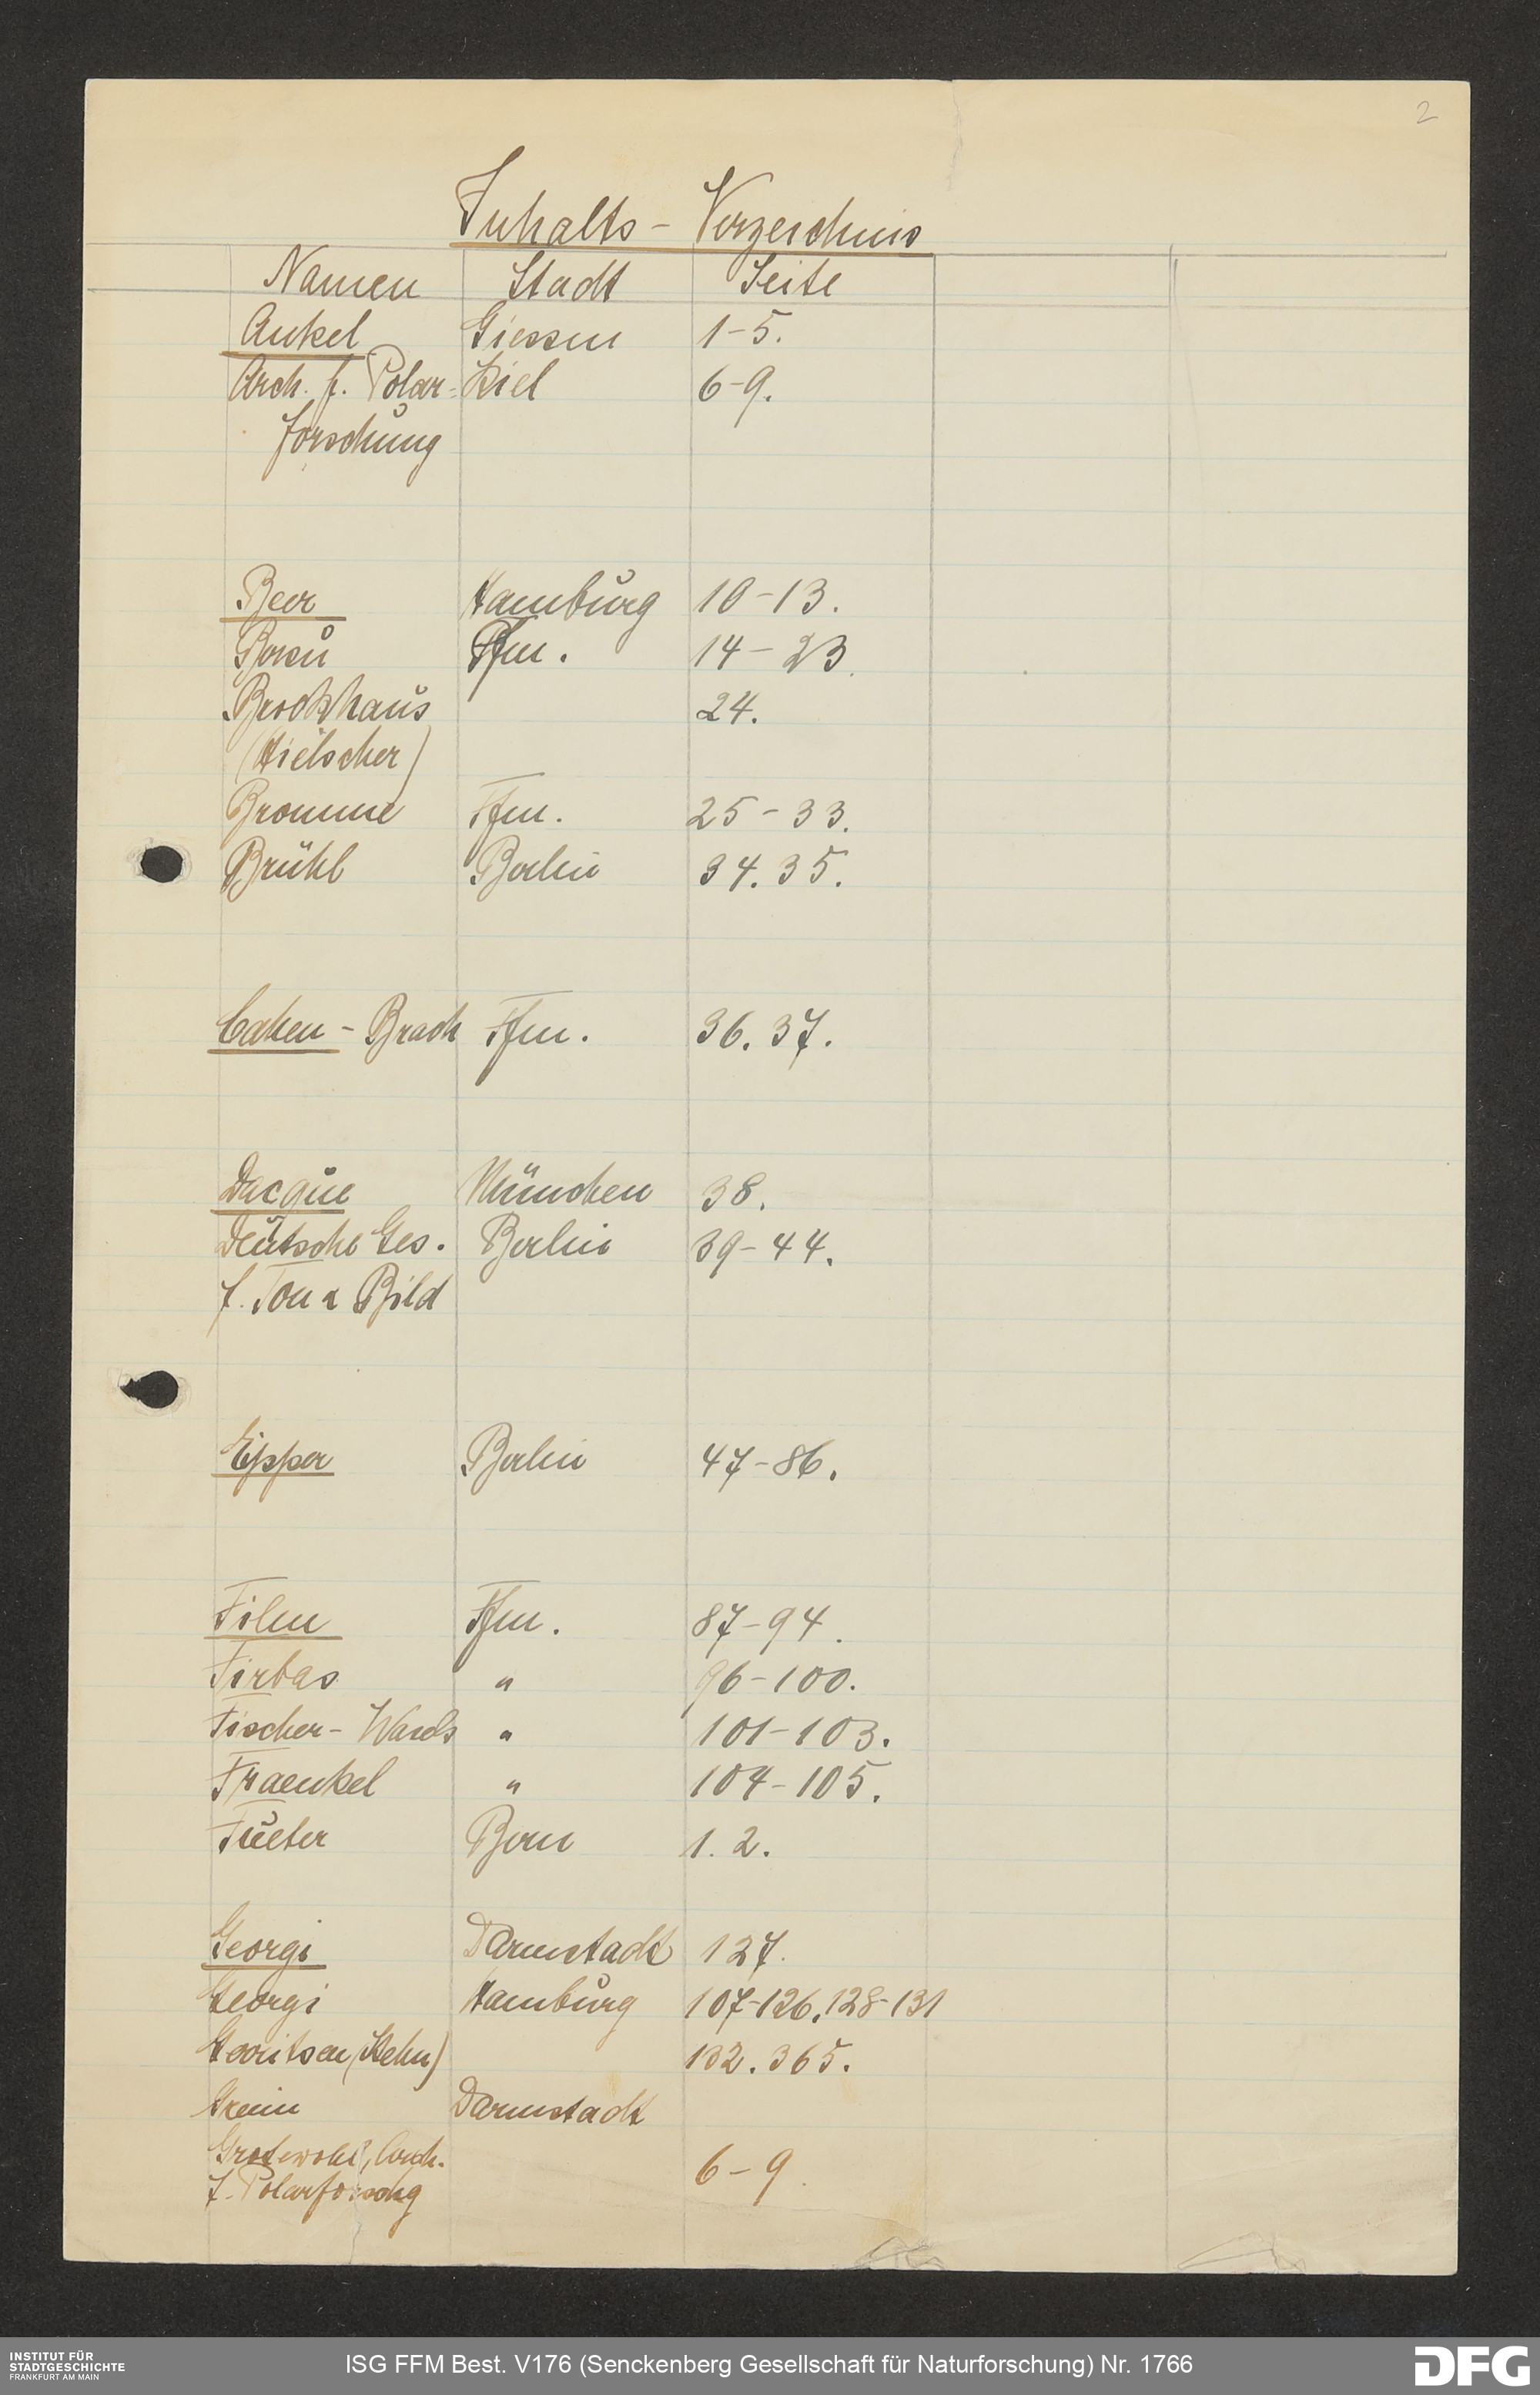 2
Inhalts - Verzeichnis
Namen Stadt Seite
Ankel Giessen 1-5.
Arch. f. Polar= Kiel 6-9.
forschung
Beer Hamburg 10-13.
Boreu Ffm. 14-23.
Brockhaus 24.
(Hielscher)
Bromme Ffm. 25-33.
Brühl Berlin 34. 35.
Cahen - Brach Ffm. 36. 37.
Dacque München 38.
Deutsche Ges. Berlin 39-44.
f. Ton & Bild
Epper Berlin 47-86.
Film Ffm. 87-94.
Firbas " 96-100.
Fischer- " 101-103.
Fraenkel " 104-105.
Fueter Bern 1. 2.
Georgi Darmstadt 127.
Georgi Hamburg 107-126, 128-131
Gerritsen 132. 365.
Darmstadt
Grotewohl, Arch. 6-9.
f. Polarforschg
INSTITUT FÜR
STADTGESCHICHTE
FRANKFURT AM MAIN
ISG FFM Best. V176 (Senckenberg Gesellschaft für Naturforschung) Nr. 1766
DFG